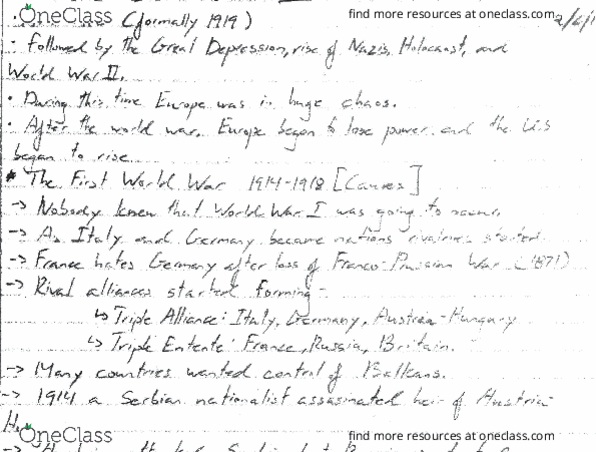 OneClass
find more resources at oneclass.com
(formally 1919)
• Followed by the Great Depression, rise of Nazis, Holocaust, and
World War II.
• During this time Europe was in huge chaos.
• After the world war, Europe began to lose power and the U.S
began to rise.
* The First World War 1914-1918 [Causes]
-> Nobody knew that World War I was going to occur.
-> As Italy and Germany became nations rivalries started.
-> France hates Germany after loss of Franco-Prussian War (1871)
-> Rival alliances started forming-
↳ Triple Alliance: Italy, Germany, Austria-Hungary
↳ Triple Entente: France, Russia, Britain.
-> Many countries wanted control of Balkans.
-> 1914 a Serbian nationalist assasinated heir of Austria-
OneClass
find more resources at oneclass.com